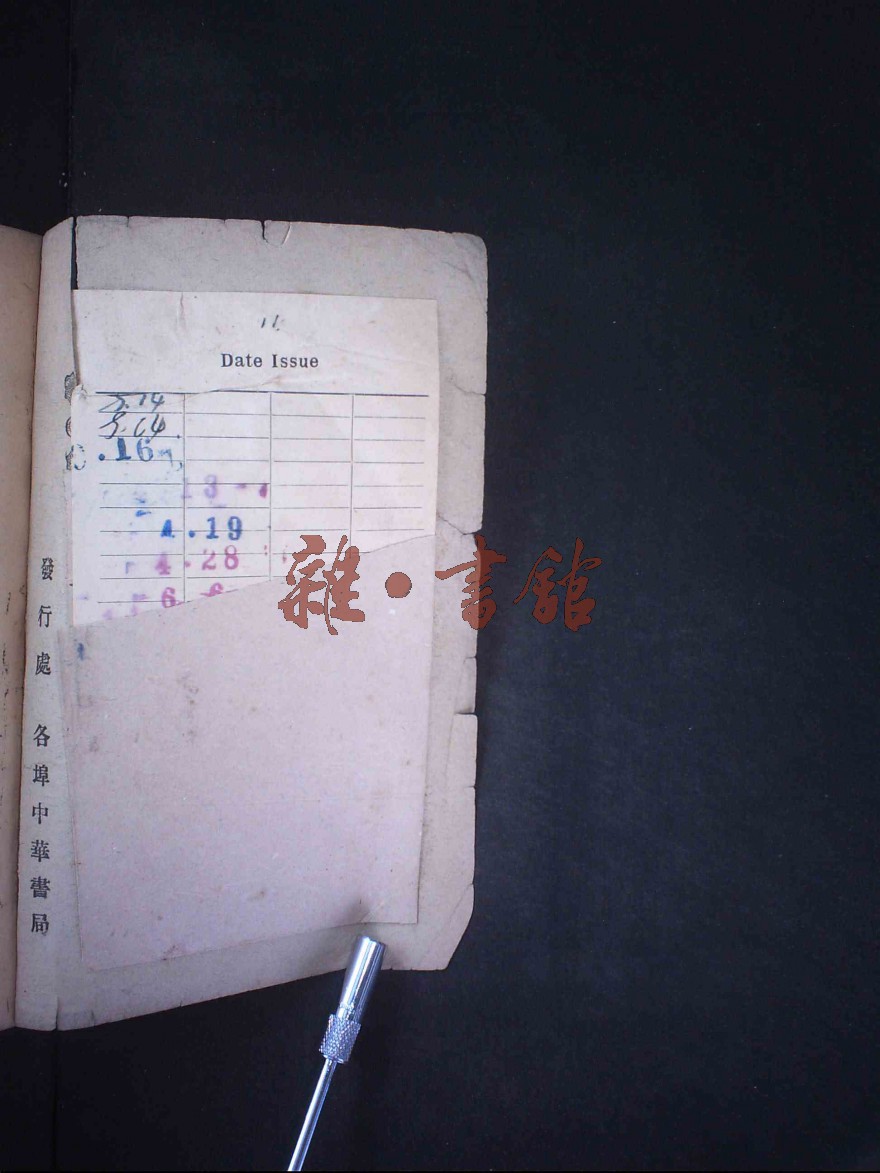 11
Date Issue
5.14
5.14
.16
18
4.19
4.28
6 6
雜·書館
發行處 各埠中華書局